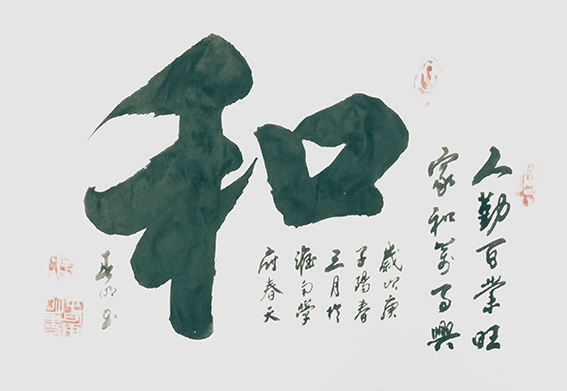 人勤百業旺
家和萬事興
和
歲次庚
子陽春
三月於
淮南學
府春天